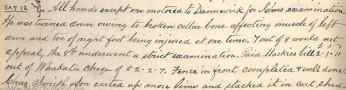 SAT. 12 All hands except one motored to Dannevirk for Semi examination
He was turned down owing to broken collar bone affecting muscle of left
arm and toe of right foot being injured at one time. 7 out of 8 would not
appeal, the 8th underwent a strict examination. Paid Mackies bill 2-1-11
out of Whakatu cheque of £2-2-7. Fence in front completed & well done
Chas. Smith & Son carted up more lime and placked it in cart shed